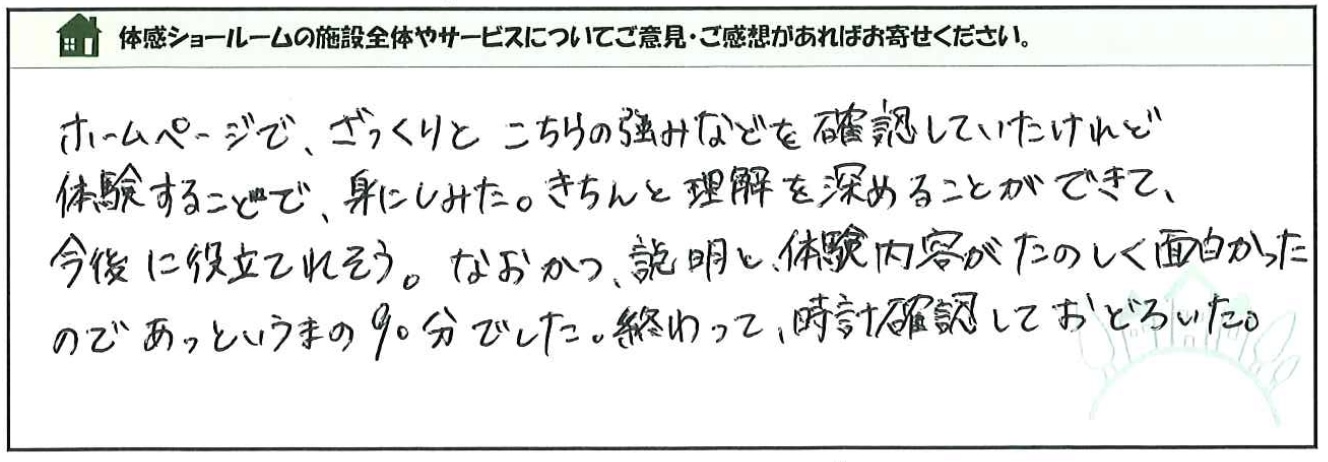 体感ショールームの施設全体やサービスについてご意見・ご感想があればお寄せください。
ホームページで、ざっくりと こちらの強みなどを確認していたけれど
体験することで、身にしみた。きちんと理解を深めることができて、
今後に役立てれそう。なおかつ、説明と、体験内容がたのしく面白かった
のであっというまの90分でした。終わって、時計確認しておどろいた。